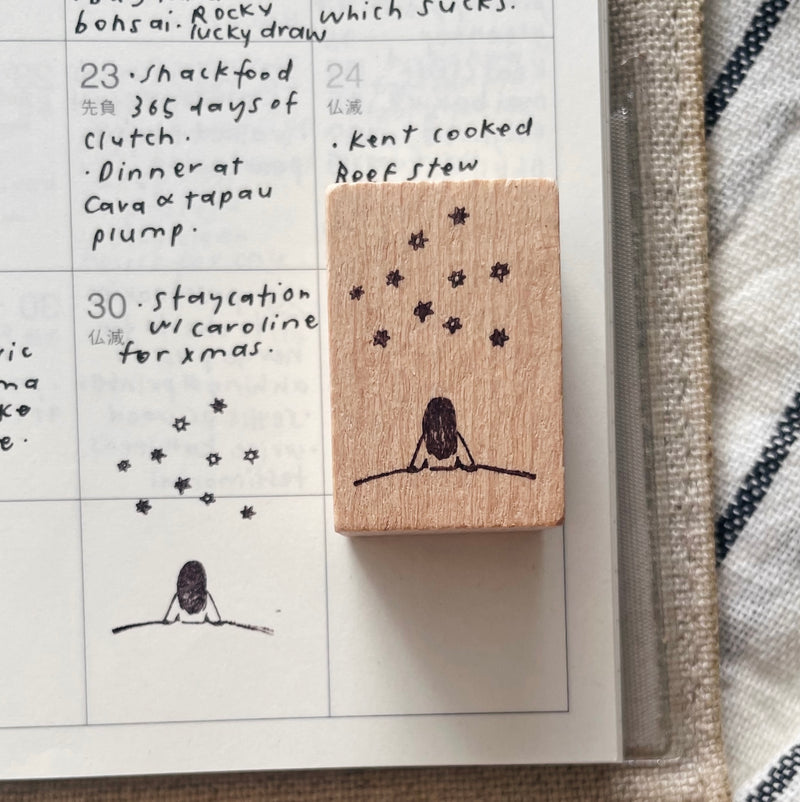 bonsai. Rocky
lucky draw
which sucks.
23 · shackfood
先負 365 days of
clutch.
· Dinner at
Cava & tapau
plump.
24
仏滅
· Kent cooked
Beef stew
30 · staycation
仏滅 w/ caroline
for xmas.
ic
ma
ke
e.